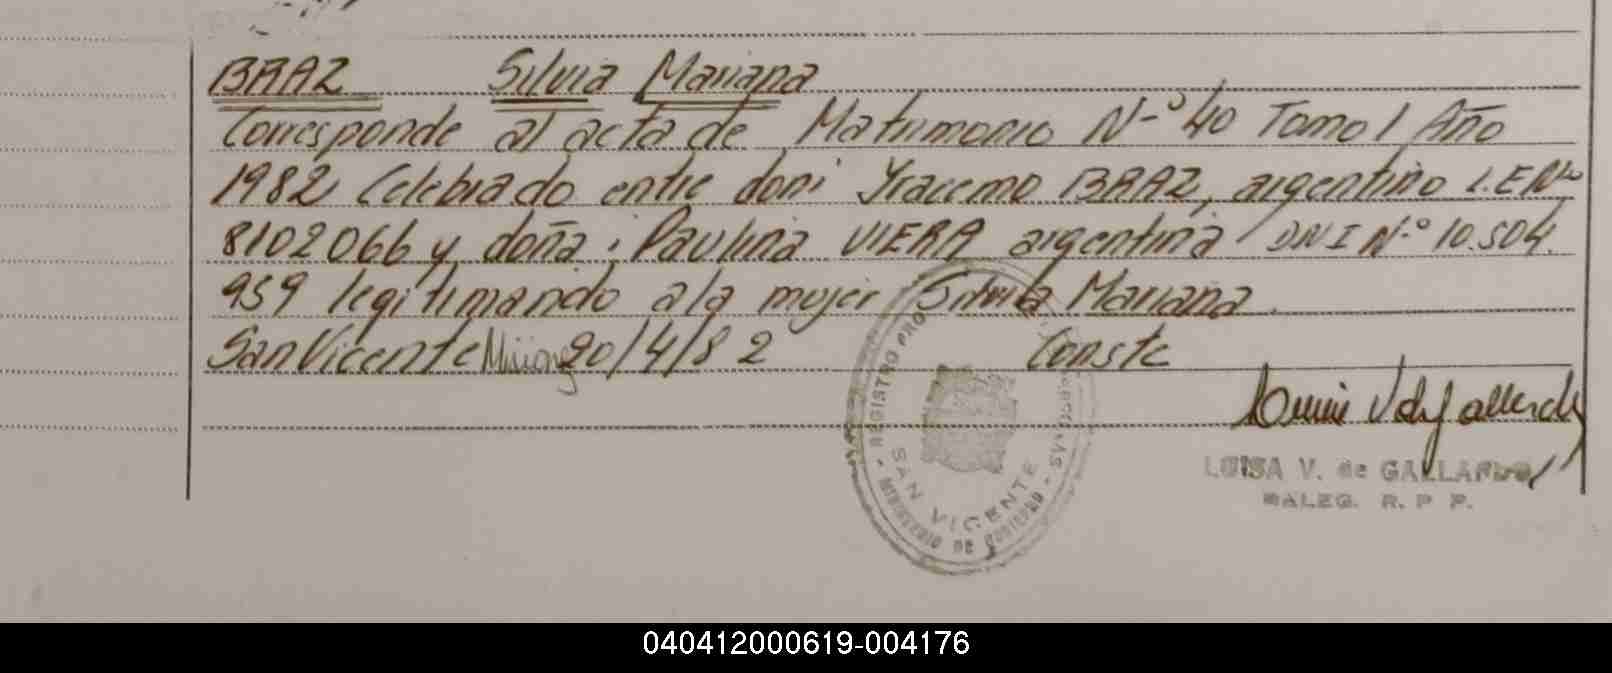 BRAZ Silvia Mariana
Corresponde al acta de Matrimonio N-º 40 Tomo 1 Año
1982 Celebrado entre don: Yracemo BRAZ, argentino L.E Nº
8102066 y doña: Paulina VIERA argentina DNI N-º 10.504.
959 legitimando a la mujer Silvia Mariana.
San Vicente Misiones 20/4/82 Conste
REGISTRO PRO
SAN VICENTE
MINISTERIO DE GOBIERNO
LUISA V. de GALLARDO
DALEG. R. P P.
040412000619-004176